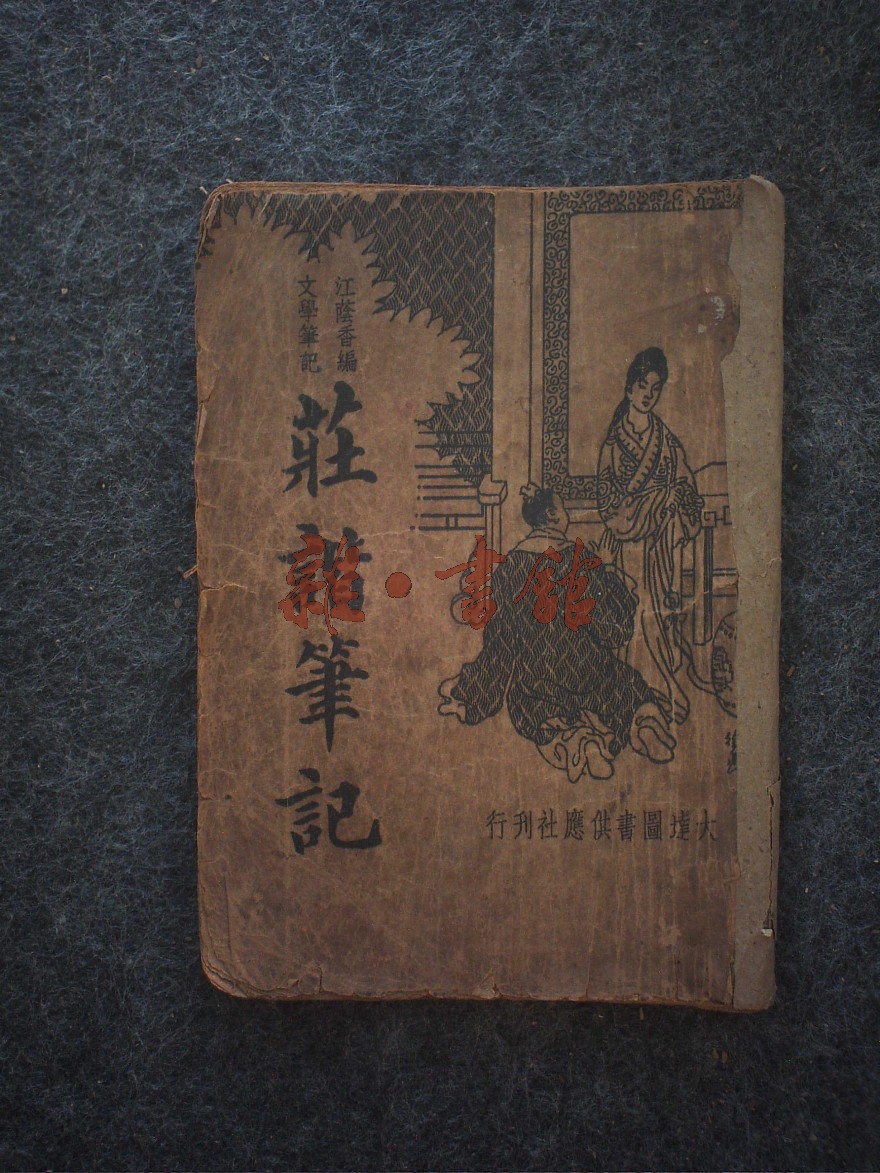 江蔭香編
文學筆記
莊諧筆記
雜·書館
大達圖書供應社刊行